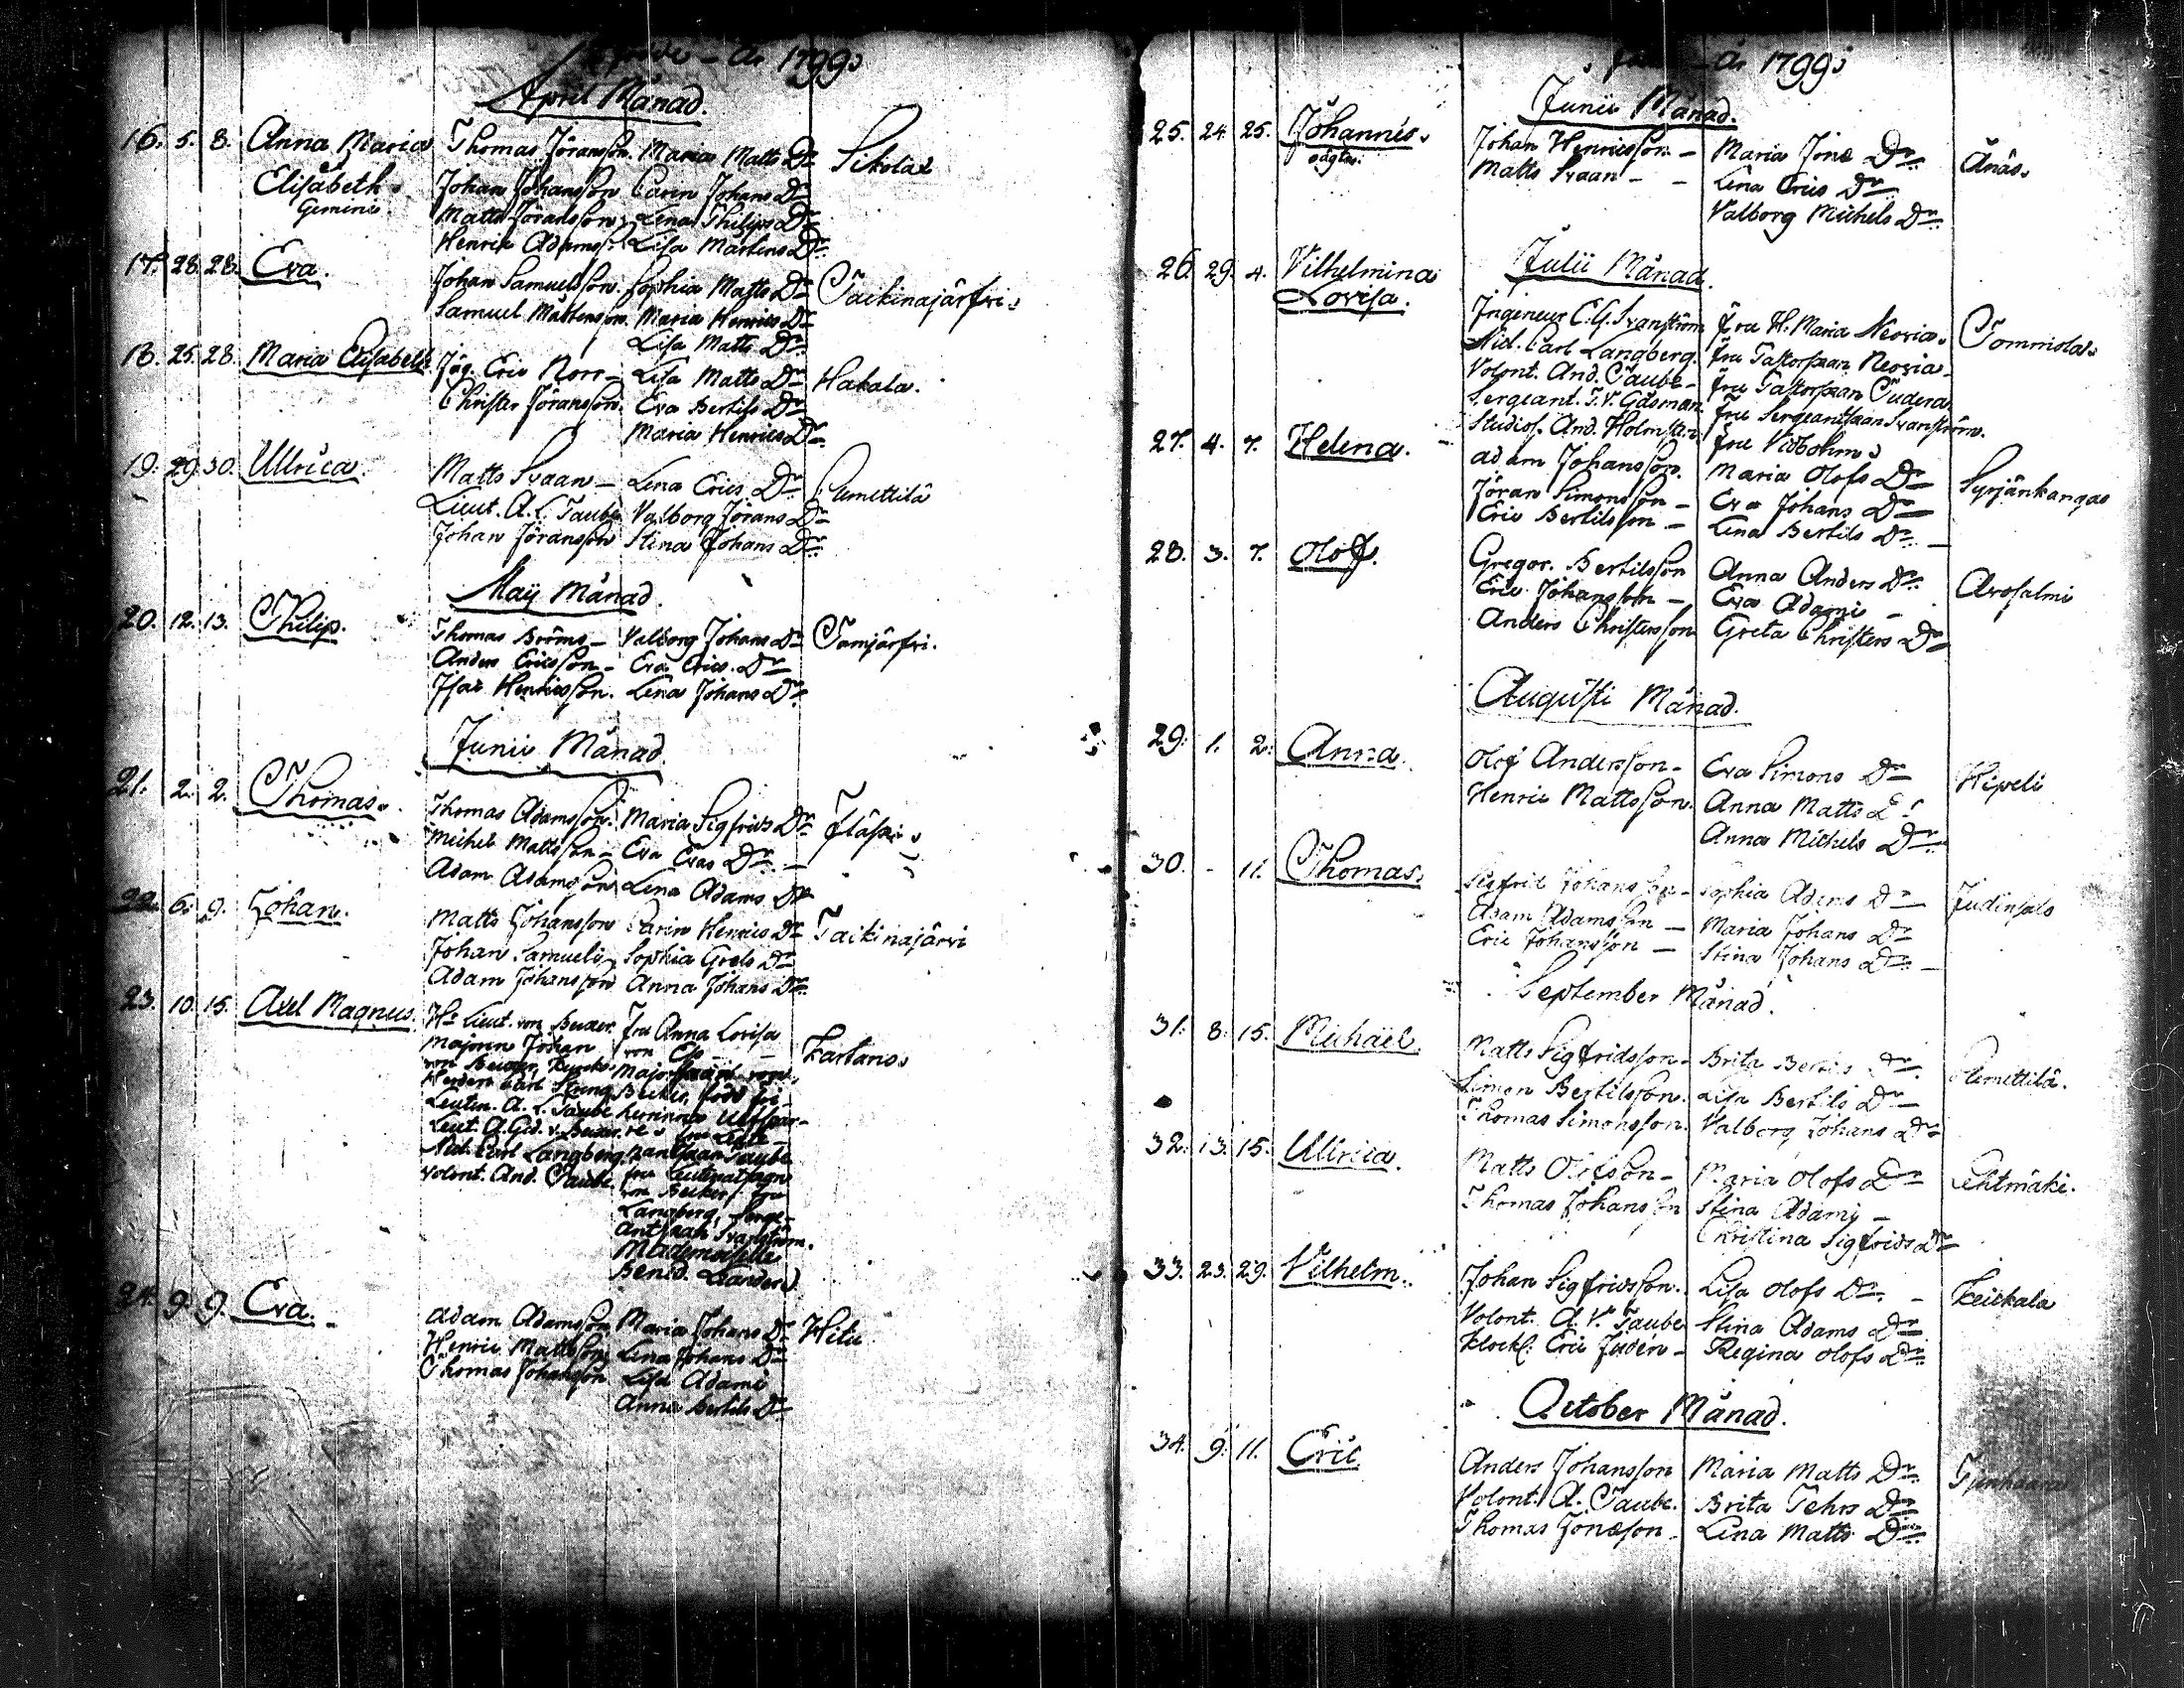 År 1799
April Månad.
16. 5. 8. Anna Maria Thomas Jöransson. Maria Matts Dr Sikola
Elisabeth Johan Johansson Carin Johans Dr
Gemini Matts Jöransson Lena Philips Dr
Henric Adamss. Lisa Mårtens Dr
17. 28. 28. Eva. Johan Samuelsson. Sophia Matts Dr Taikinajärfvi
Samuel Mårtensson. Maria Henrics Dr
Lisa Matts Dr
18. 25. 28. Maria Elisabeth Eric Norr Lisa Matts Dr Hakala.
Christer Jöransson. Eva Bertils Dr
Maria Henrics Dr
19. 29. 30. Ullrica. Matts Svaan Lena Erics Dr Clemettilä
Lieut. A. L. Taube Valborg Jörans Dr
Johan Jöransson Stina Johans Dr
Maij Månad.
20. 12. 13. Philip. Thomas Valborg Johans Dr
Anders Ericsson Eva Erics Dr
Isac Henricsson. Lena Johans Dr
Junii Månad
21. 2. 2. Thomas. Thomas Adamsson. Maria Sigfrids Dr
Michel Mattsson Eva Dr
Adam Adamsson Lena Adams Dr
22. 6. 9. Johan. Matts Johansson Carin Henrics Dr Taikinajärvi
Johan Samuels. Sophia Grels Dr
Adam Johansson Anna Johans Dr
23. 10. 15. Axel Magnus. Hr Lieut. von Becker. Fru Anna Lovisa Kartano
Majoren Johan von
von Becker,
Carl
Leutn. A. L. Taube
Lieut. A. Gid. v. Becker
Carl Langberg Taube
Volont. And. Taube
von Becker, fru
Langberg,
Svanström.
Mademoiselle
Bened. Leander
24. 9. 9. Eva. Adam Adamsson Maria Johans Dr
Henric Mattsson Lena Johans Dr
Thomas Johansson Lisa Adami
Anna Bertils Dr
År 1799
Junii Månad.
25. 24. 25. Johannes. Johan Henricsson Maria Jöns Dr Änäs.
oägta. Matts Svaan Lena Erics Dr
Valborg Michels Dr
Julii Månad.
26. 29. 4. Vilhelmina Ingenieur C. G. Svanström Fru H. Maria Neovia. Tommola
Lovisa. Carl Langberg. Fru Pastorskan Neovia
Volont. And. Taube Fru Pastorskan
Sergeant. Gåsman Fru Sergeantskan Svanström.
Studios. And. Fru
27. 4. 7. Helena. Adam Johansson. Maria Olofs Dr Syrjänkangas
Jöran Simonsson Eva Johans Dr
Eric Bertilsson Lena Bertils Dr
28. 3. 7. Olof. Gregor. Bertilsson Anna Anders Dr
Eric Johansson Eva Adami
Anders Christersson Greta Christers Dr
Augusti Månad.
29. 1. 2. Anna. Olof Andersson Eva Simons Dr
Henric Mattsson. Anna Matts
Anna Michels Dr
30. - 11. Thomas. Sigfrid Johansson Sophia Adams Dr
Adam Adamsson Maria Johans Dr
Eric Johansson Stina Johans Dr
September Månad.
31. 8. 15. Michäel. Matts Sigfridsson Brita Bertils Dr Clemettilä.
Simon Bertilsson. Lisa Bertils Dr
Thomas Simonsson. Valborg Johans Dr
32. 13. 15. Ullrica. Matts Olofsson Maria Olofs Dr Lehtmäki.
Thomas Johansson Stina Adami
Christina Sigfrids Dr
33. 23. 29. Vilhelm. Johan Sigfridsson. Lisa Olofs Dr Keickala
Volont. A. V. Taube Stina Adams Dr
Klock. Eric Judén Regina Olofs Dr
October Månad.
34. 9. 11. Eric Anders Johansson Maria Matts Dr
Volont. A. Taube. Brita Pehrs Dr
Thomas Jönsson. Lena Matts Dr